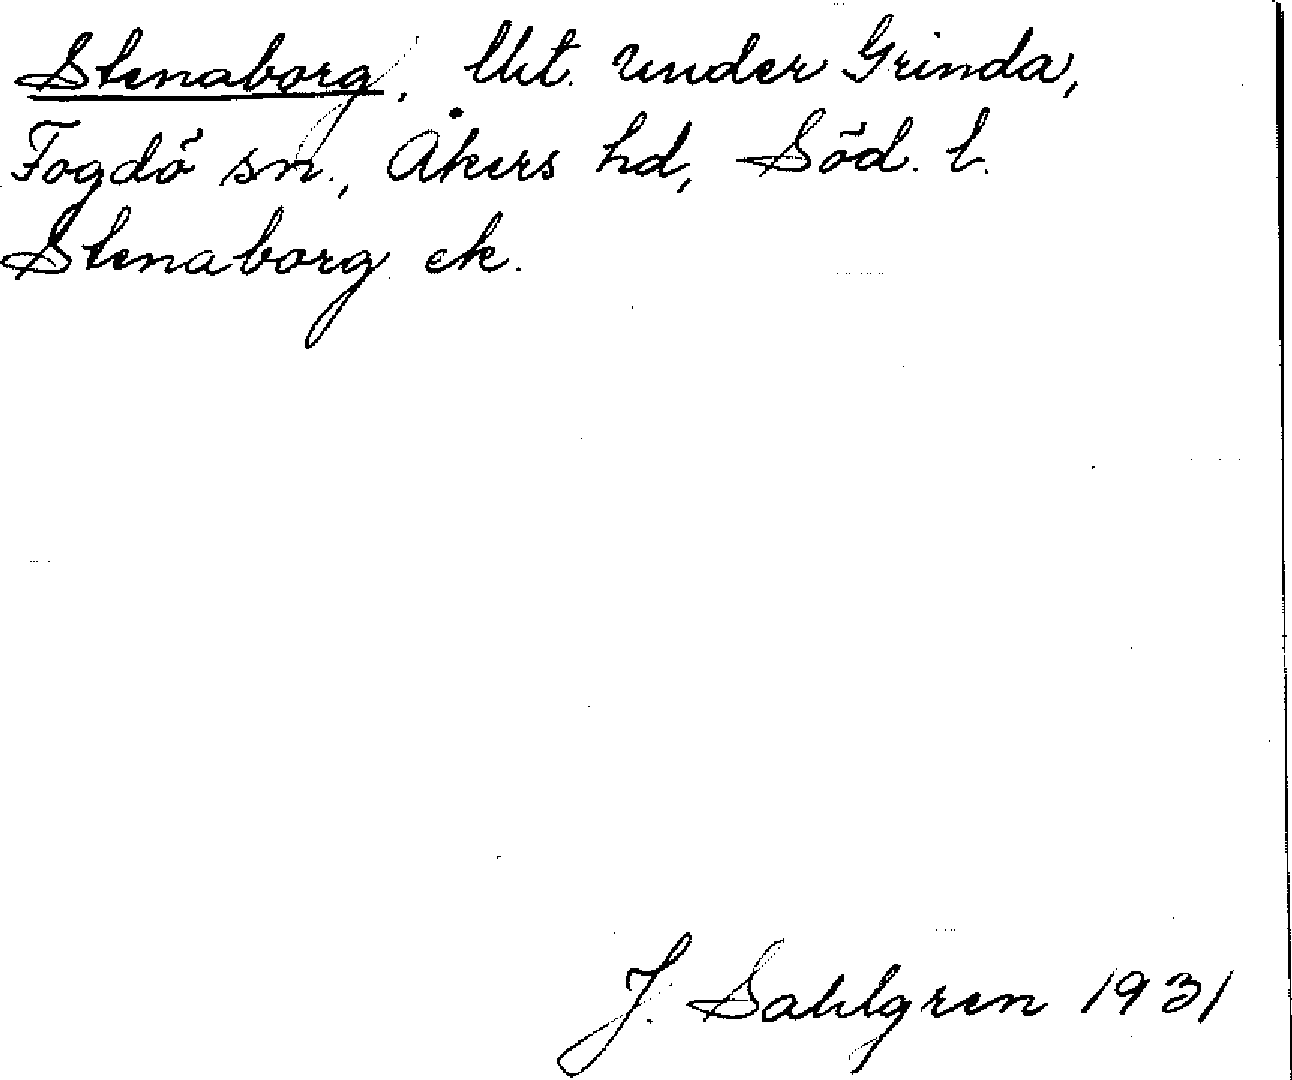 Stenaborg, lht. under Grinda,
Fogdö sn., Åkers hd, Söd. l.
Stenaborg ek.
J. Sahlgren 1931